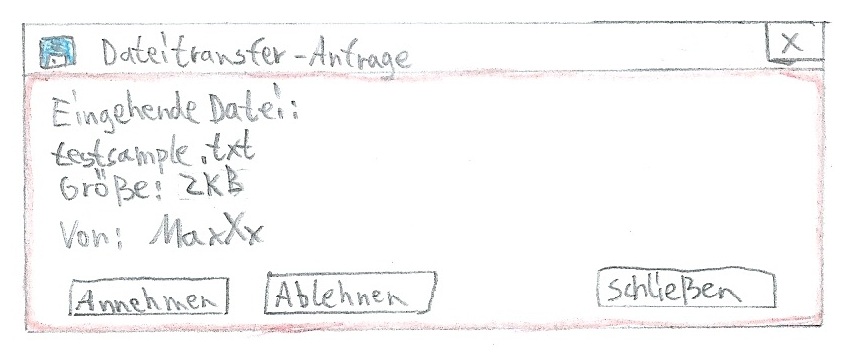 Dateitransfer-Anfrage X
Eingehende Datei:
testsample.txt
Größe: 2KB
Von: MaxXx
Annehmen Ablehnen Schließen